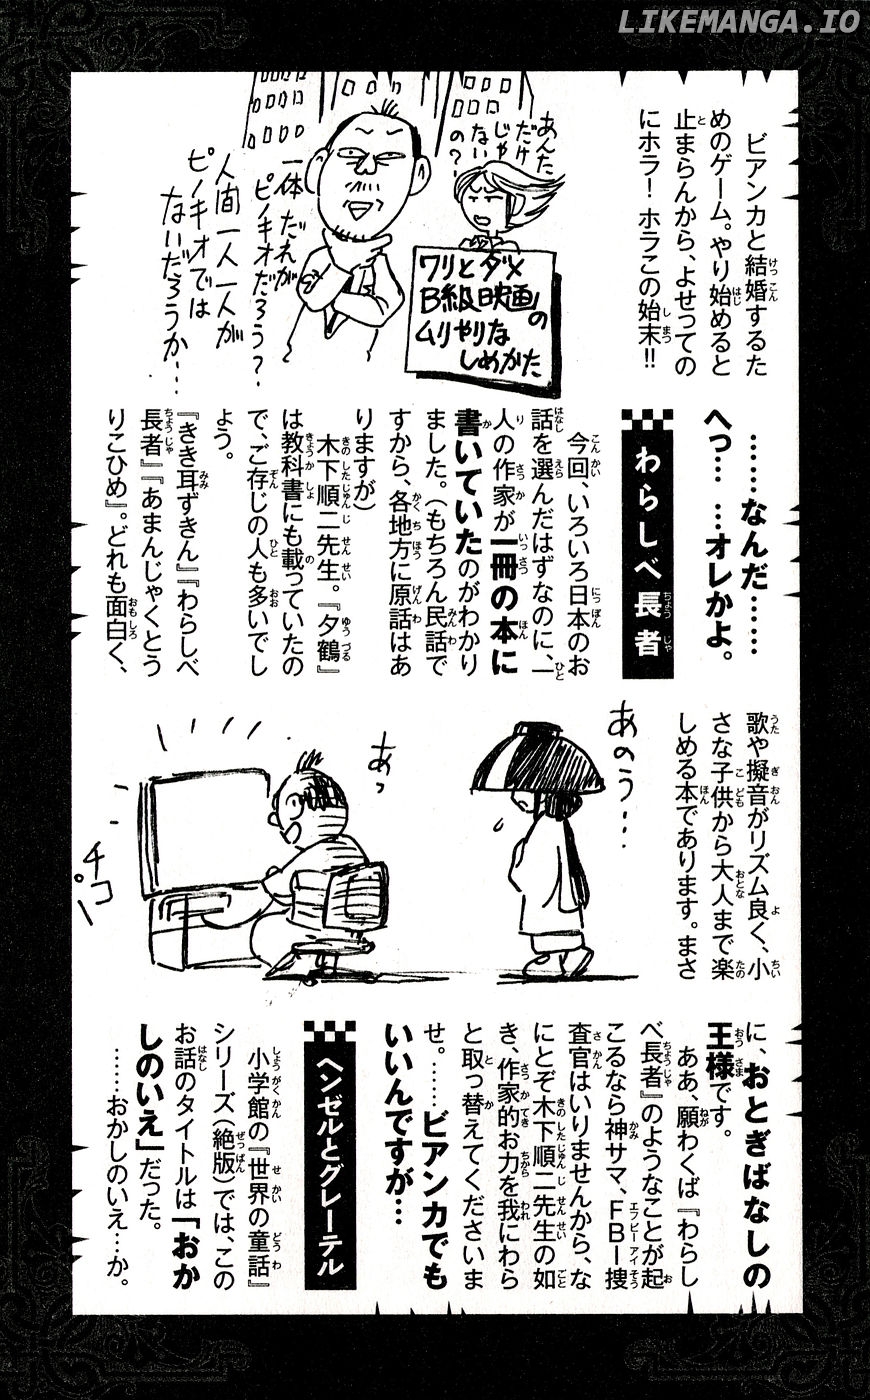 LIKEMANGA.IO
ビアンカと結婚するた
めのゲーム。やり始めると
止まらんから、よせっての
にホラ！ホラこの始末!!
あんた
だけ
じゃ
ない
の？
ワリとダメ
B級映画の
ムリやりな
しめかた
一体だれが
ピノキオだろう？
人間一人一人が
ピノキオでは
ないだろうか…
……なんだ……
へっ……オレかよ。
わらしべ長者
今回、いろいろ日本のお
話を選んだはずなのに、一
人の作家が一冊の本に
書いていたのがわかり
ました。（もちろん民話で
すから、各地方に原話はあ
りますが）
木下順二先生。『夕鶴』
は教科書にも載っていたの
で、ご存じの人も多いでし
ょう。
『きき耳ずきん』『わらしべ
長者』『あまんじゃくとう
りこひめ』。どれも面白く、
歌や擬音がリズム良く、小
さな子供から大人まで楽
しめる本であります。まさ
あのう…
あっ
チ
コ
ー
に、おとぎばなしの
王様です。
ああ、願わくば『わらし
べ長者』のようなことが起
こるなら神サマ、FBI捜
査官はいりませんから、な
にとぞ木下順二先生の如
き、作家的お力を我にわら
と取っ替えてくださいま
せ。……ビアンカでも
いいんですが…
ヘンゼルとグレーテル
小学館の『世界の童話』
シリーズ（絶版）では、この
お話のタイトルは「おか
しのいえ」だった。
……おかしのいえ…か。